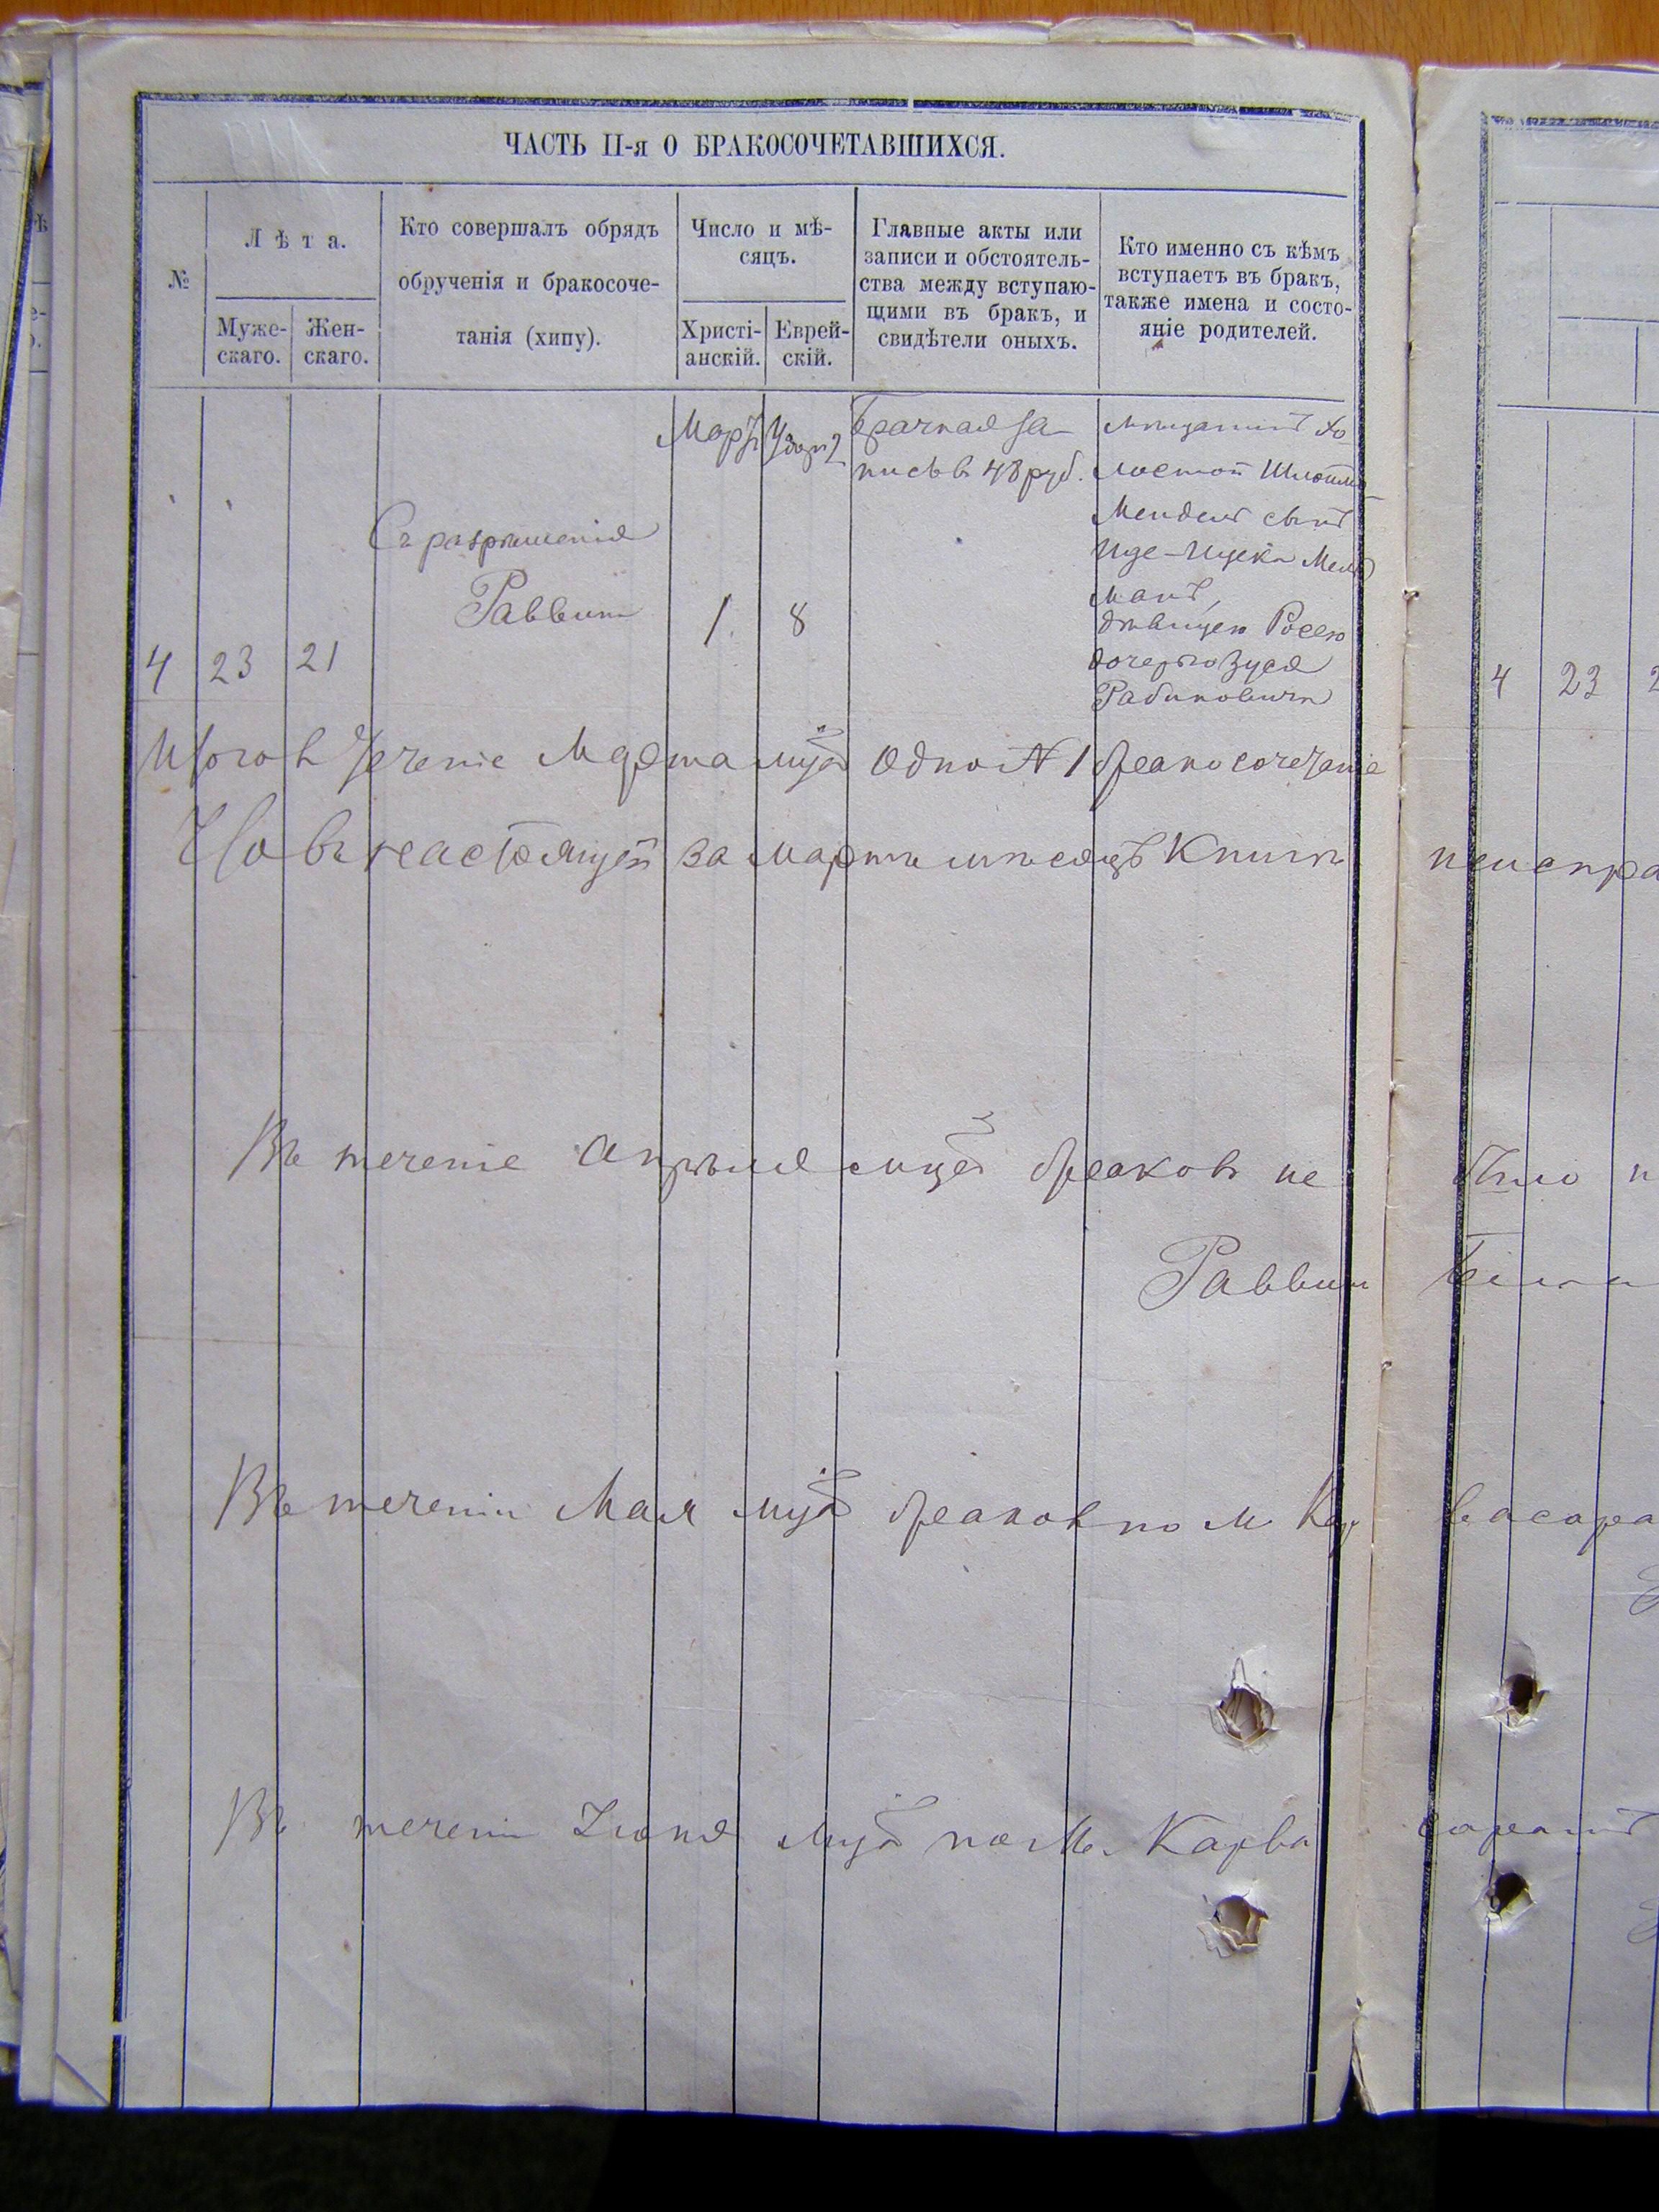 ЧАСТЬ II-я О БРАКОСОЧЕТАВШИХСЯ.
№
Лѣта.
Муже-
скаго.
Жен-
скаго.
Кто совершалъ обрядъ
обрученія и бракосоче-
танія (хипу).
Число и мѣ-
сяцъ.
Христі-
анскій.
Еврей-
скій.
Главные акты или
записи и обстоятель-
ства между вступаю-
щими въ бракъ, и
свидѣтели оныхъ.
Кто именно съ кѣмъ
вступаетъ въ бракъ,
также имена и состо-
яніе родителей.
4
23
21
Съ разрѣшенія
Раввина
Мартъ
1.
8
Брачная за-
пись в 48 руб.
мѣщанинъ хо
лостой
Мендель сынъ
Ицека
манъ,
дѣвицею Росею
дочерью Зуся
Рабиновича
4 23
Итого в теченіе Марта мца одно № 1 бракосочетаніе
Но въ настоящей за мартъ мѣсяцъ книгѣ неиспра
Въ теченіе Апрѣля мца браковъ не было
Раввин
Въ теченіи Мая мца браковъ по м. Кар васара
Въ теченіи Іюня мца по м. Карва